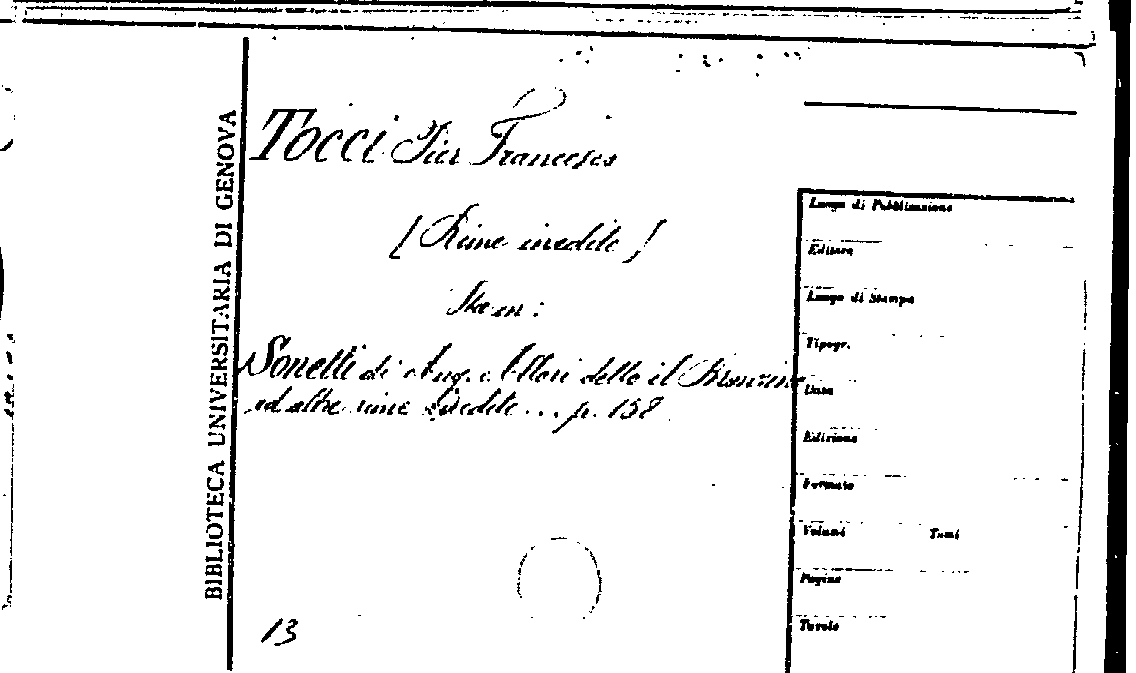 BIBLIOTECA UNIVERSITARIA DI GENOVA
Tocci Pier Francesco
[Rime inedite]
Sonetti di Ang. Allori detto il Bronzino
ed altre rime inedite... p. 158
13
Luogo di Pubblicazione
Editore
Luogo di Stampa
Tipogr.
Data
Edizione
Formato
Volumi Tomi
Pagine
Tavole